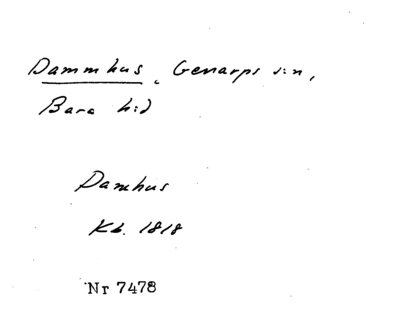 Dammhus, Genarps s:n,
Bara h:d
Damhus
Kb. 1818
Nr 7478